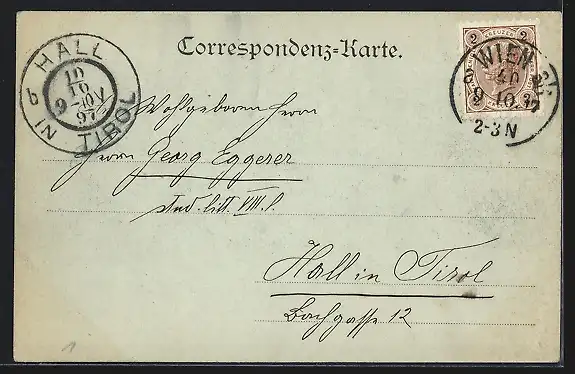 Correspondenz-Karte.
HALL
IN TIROL
b
10
10
9-10V
97
WIEN
40
9 10 97
2-3N
2 KREUZER 2
Wohlgeboren Herrn
Herrn Georg Eggerer
stud. litt. VIII. f.
Hall in Tirol
Bachgasse 12
1